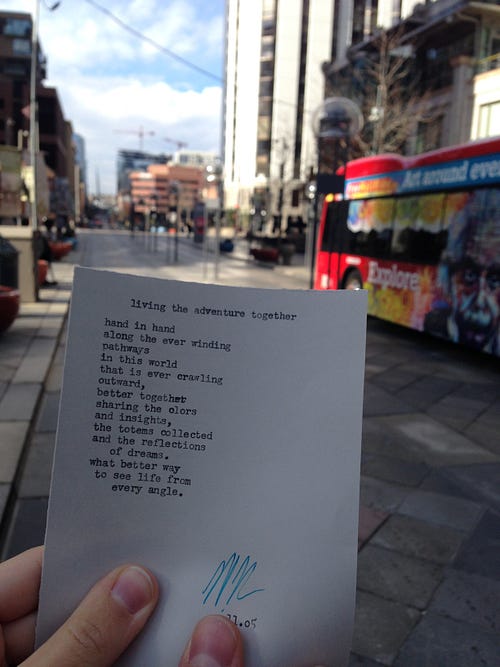 Art around eve
Explore
living the adventure together
hand in hand
along the ever winding
pathways
in this world
that is ever crawling
outward,
better together
sharing the olors
and insights,
the totems collected
and the reflections
of dreams.
what better way
to see life from
every angle.
11.05